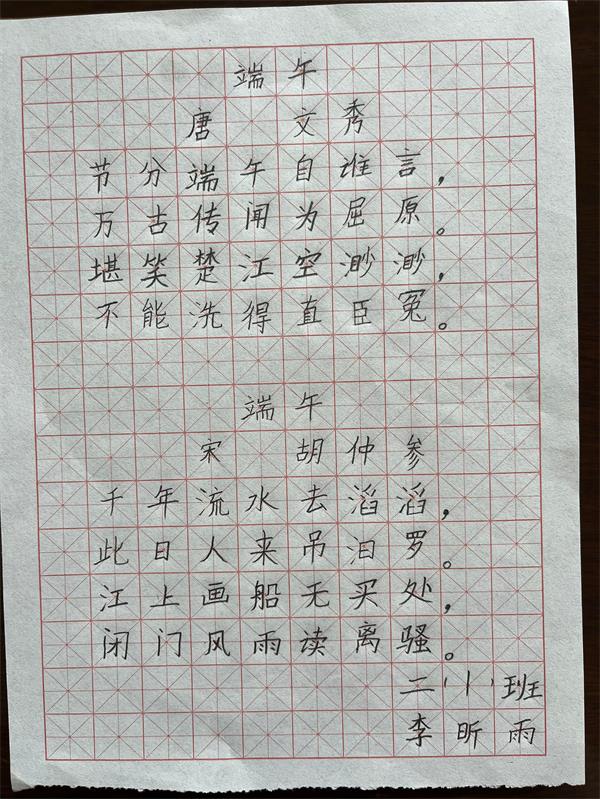 端午
唐 文秀
节分端午自谁言，
万古传闻为屈原。
堪笑楚江空渺渺，
不能洗得直臣冤。
端午
宋 胡仲参
千年流水去滔滔，
此日人来吊汨罗。
江上画船无买处，
闭门风雨读离骚。
二(1)班
李昕雨